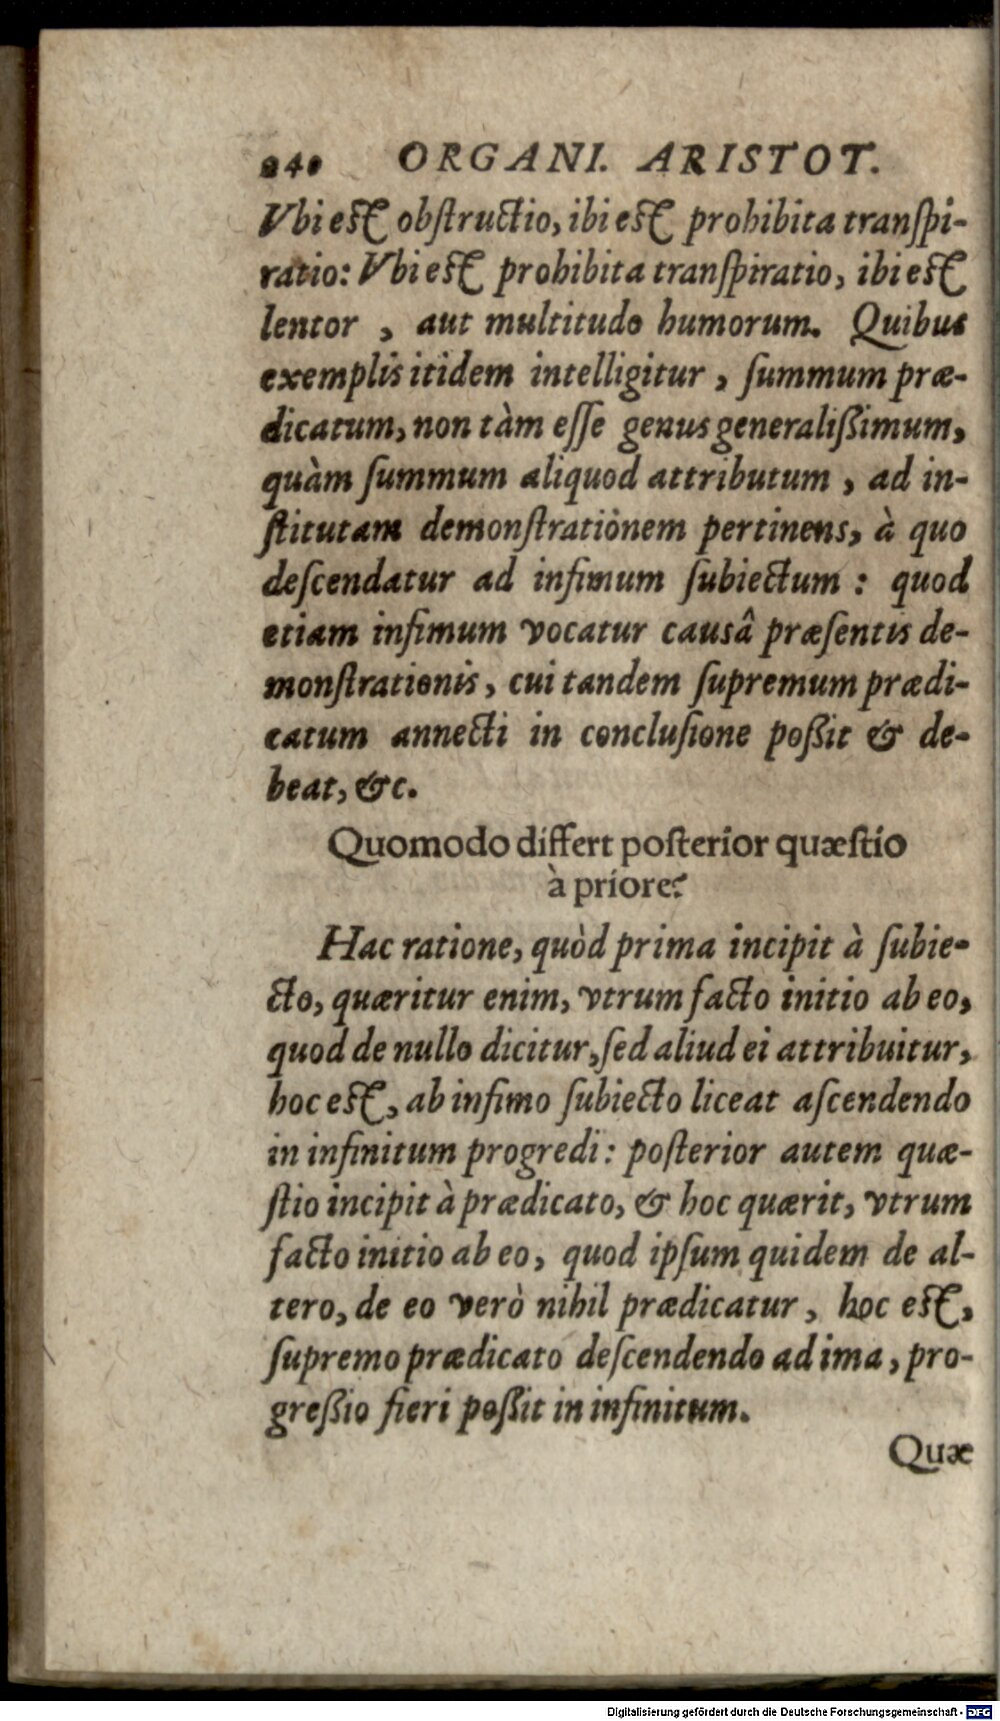 240 ORGANI. ARISTOT.
Vbi est obſtructio, ibi est prohibita tranſpi-
ratio: Vbi est prohibita tranſpiratio, ibi est
lentor , aut multitudo humorum. Quibus
exemplis itidem intelligitur , ſummum præ-
dicatum, non tàm eſſe genus generaliſsimum,
quàm ſummum aliquod attributum , ad in-
ſtitutam demonſtrationem pertinens, à quo
deſcendatur ad infimum ſubiectum : quod
etiam infimum vocatur causâ præſentis de-
monſtrationis, cui tandem ſupremum prædi-
catum annecti in concluſione poſsit & de-
beat, &c.
Quomodo differt poſterior quæſtio
à priore?
Hac ratione, quòd prima incipit à ſubie-
cto, quæritur enim, vtrum facto initio ab eo,
quod de nullo dicitur, ſed aliud ei attribuitur,
hoc est, ab infimo ſubiecto liceat aſcendendo
in infinitum progredi: poſterior autem quæ-
ſtio incipit à prædicato, & hoc quærit, vtrum
facto initio ab eo, quod ipſum quidem de al-
tero, de eo verò nihil prædicatur, hoc est,
ſupremo prædicato deſcendendo ad ima, pro-
greſsio fieri poſsit in infinitum.
Quæ
Digitalisierung gefördert durch die Deutsche Forschungsgemeinschaft - DFG